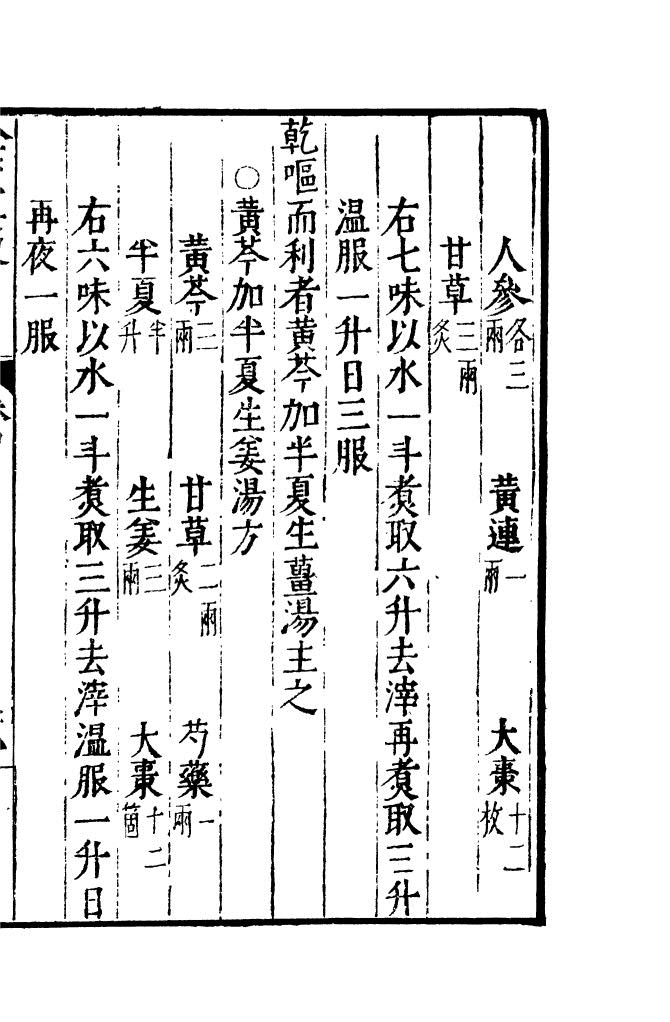 人參各三兩 黃連一兩 大棗十二枚
甘草三兩炙
右七味以水一斗煑取六升去滓再煑取三升
温服一升日三服
乾嘔而利者黃芩加半夏生薑湯主之
○黃芩加半夏生姜湯方
黃芩三兩 甘草二兩炙 芍藥一兩
半夏半升 生姜三兩 大棗十二箇
右六味以水一斗煑取三升去滓温服一升日
再夜一服